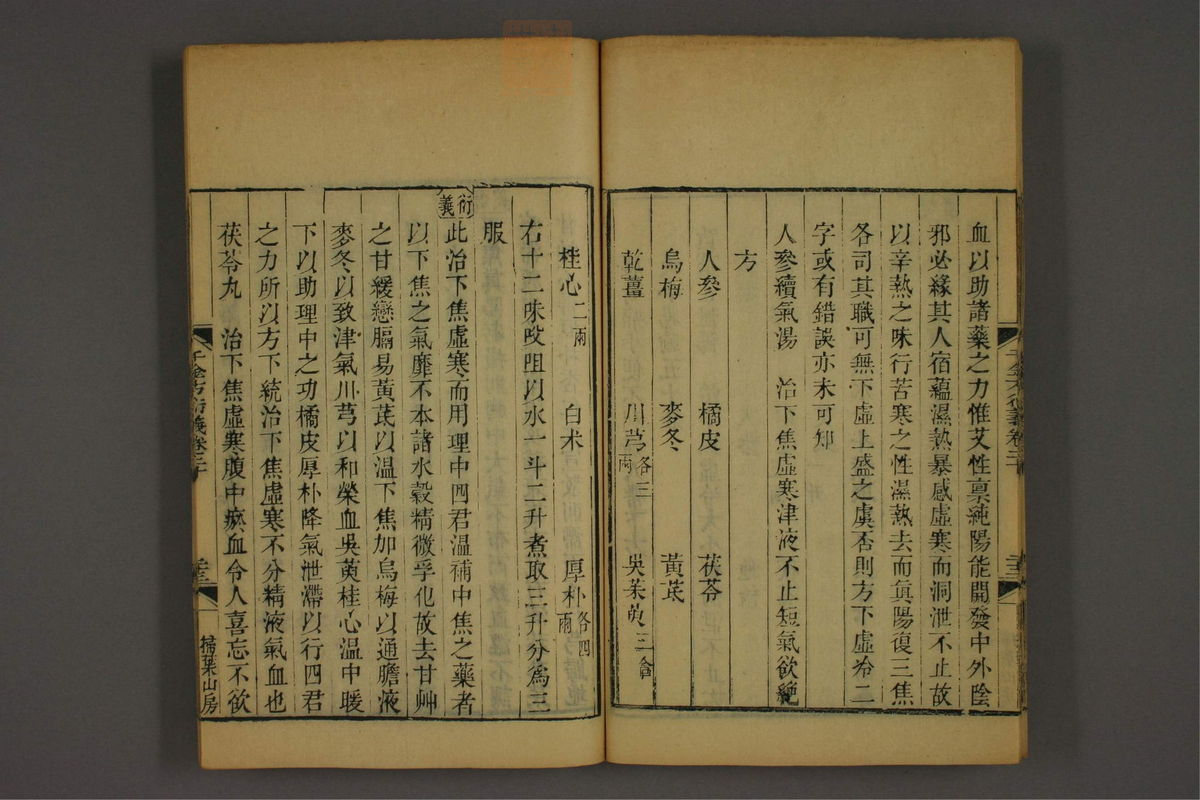 血以助諸藥之力惟艾性稟純陽能開發中外陰
邪必緣其人宿蘊濕熱暴感虛寒而洞泄不止故
以辛熱之味行苦寒之性濕熱去而眞陽復三焦
各司其職可無下虛上盛之虞否則方下虛寒二
字或有錯誤亦未可知
人參續氣湯 治下焦虛寒津液不止短氣欲絕
方
人參 橘皮 茯苓
烏梅 麥冬 黃芪
乾薑 川芎各三兩 吳茱萸三合
桂心二兩 白术 厚朴各四兩
右十二味㕮咀以水一斗二升煮取三升分爲三
服
衍義
此治下焦虛寒而用理中四君溫補中焦之藥者
以下焦之氣靡不本諸水穀精微孚化故去甘艸
之甘緩戀膈易黃芪以溫下焦加烏梅以通膽液
麥冬以致津氣川芎以和榮血吳萸桂心溫中暖
下以助理中之功橘皮厚朴降氣泄滯以行四君
之力所以方下統治下焦虛寒不分精液氣血也
茯苓丸 治下焦虛寒腹中瘀血令人喜忘不欲
千金方衍義卷二十 三三 掃葉山房